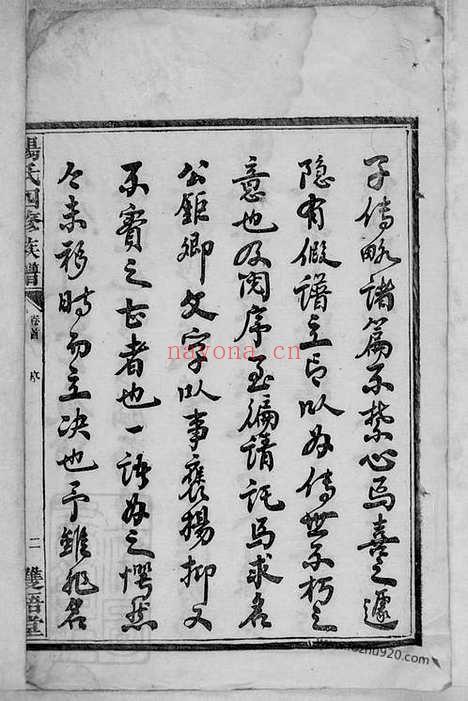 子傳略諸篇不禁心焉喜之遽
隐有假譜立言以為傳世不朽之
意也及閱序至徧請託焉求名
公鉅卿文字以事襃揚抑又
不實之甚者也一語為之愕然
久未移時而主決也予雖非名
楊氏四修族譜
卷首
序
二
雙語堂
nayona.cn